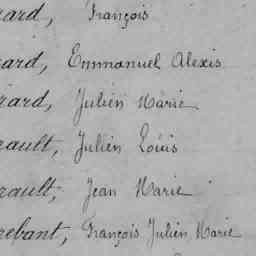 rard, François
rard, Emmanuel Alexis
rard, Julien Marie
rault, Julien Louis
rault, Jean Marie
rebant, François Julien Marie